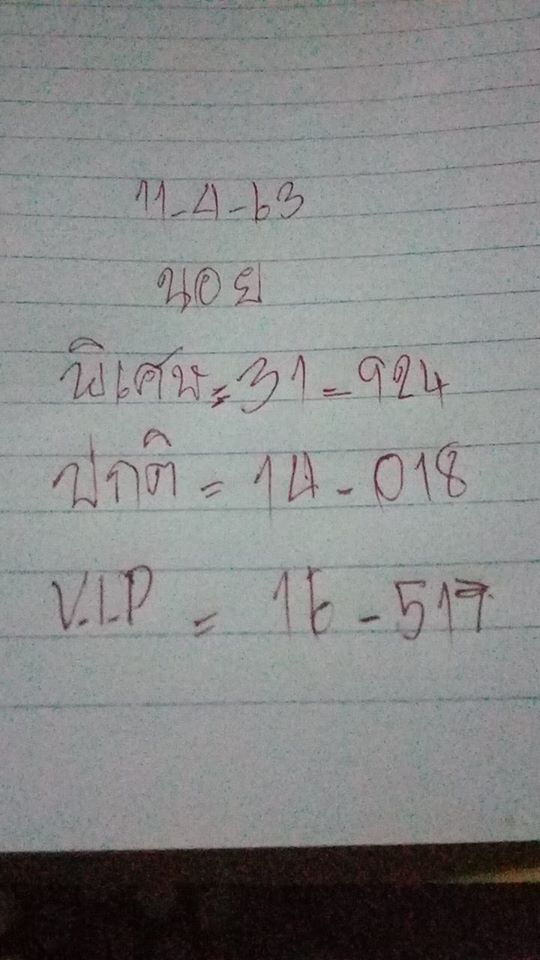 11-4-63
นอย
พิเศษ = 31 - 924
ปกติ = 14 - 018
V.I.P = 16 - 517